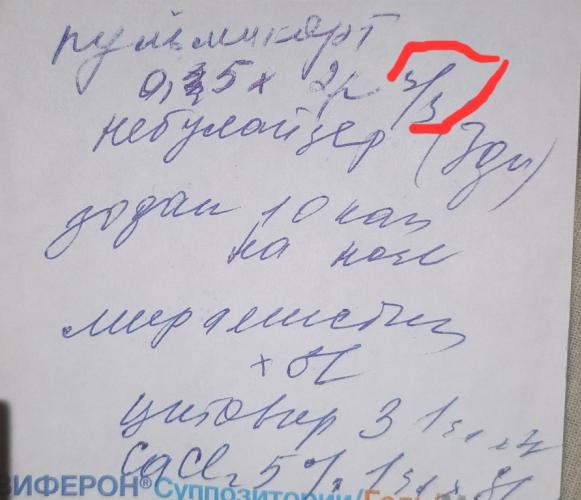 пульмикорт
0,25 x 2р ч/з
небулайзер (3дн)
зодак 10 кап
на ночь
мирамистин
x 6
цитовир 3 1 ч.л
CaCl₂ 5% 1 ч.л x
ВИФЕРОН® Суппозитории/Гель